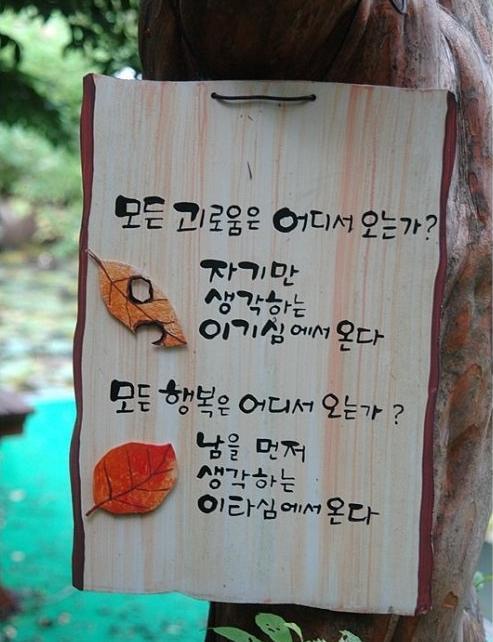 모든 괴로움은 어디서 오는가?
자기만
생각하는
이기심에서 온다
모든 행복은 어디서 오는가?
남을 먼저
생각하는
이타심에서 온다